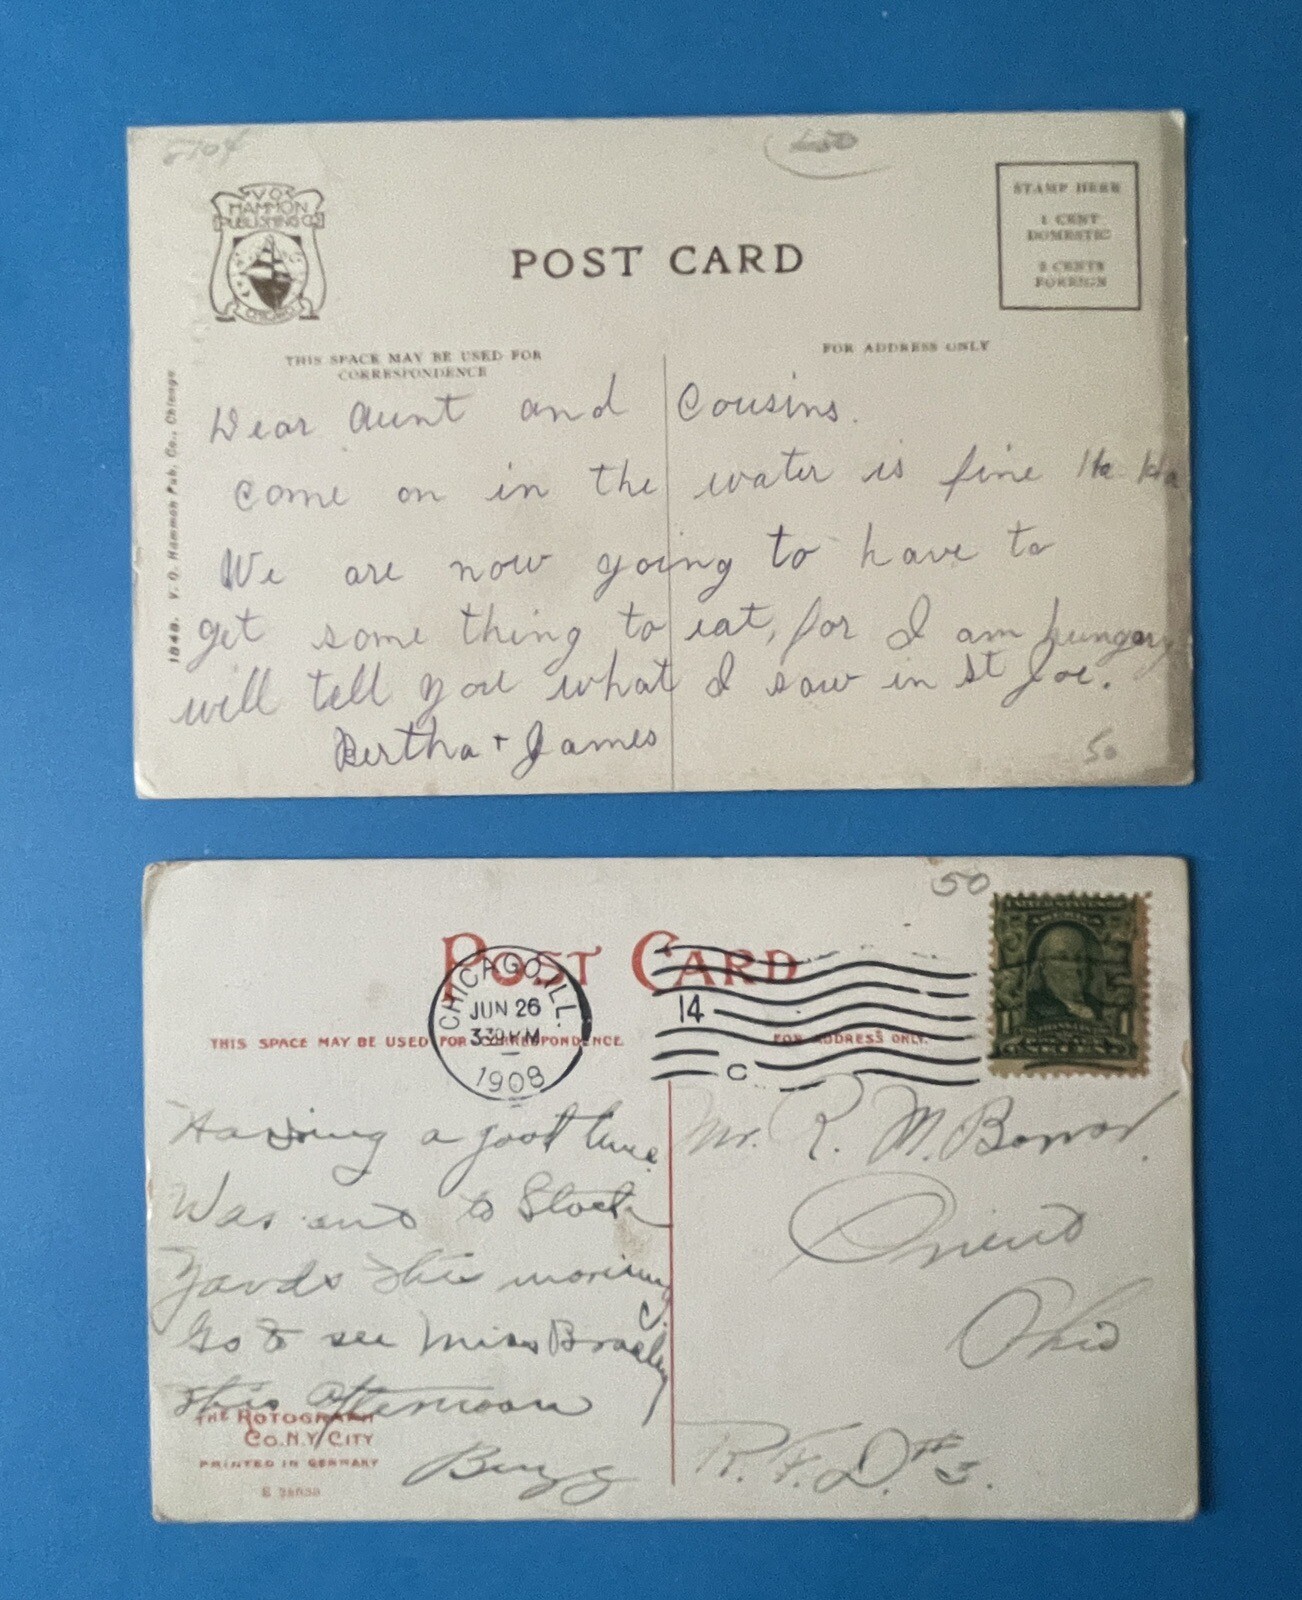 V.O.
HAMMON
PUBLISHING CO
CHICAGO
POST CARD
STAMP HERE
1 CENT
DOMESTIC
2 CENTS
FOREIGN
THIS SPACE MAY BE USED FOR
CORRESPONDENCE
FOR ADDRESS ONLY
1848. V. O. Hammon Pub. Co., Chicago
Dear Aunt and Cousins.
Come on in the water is fine Ha Ha
We are now going to have to
get some thing to eat, for I am hungary
will tell you what I saw in St Joe.
Bertha + James
50
50
POST CARD
CHICAGO, ILL.
JUN 26
1908
14
C
UNITED STATES OF
AMERICA
1 1
THIS SPACE MAY BE USED FOR CORRESPONDENCE.
FOR ADDRESS ONLY.
Having a good time.
Was out to Stock
Yards this morning
Go to see Miss Bradley
this afternoon
Mr. R. M.
Orient
Ohio
R. F. D. # 3.
THE ROTOGRAPH
CO. N.Y. CITY
PRINTED IN GERMANY